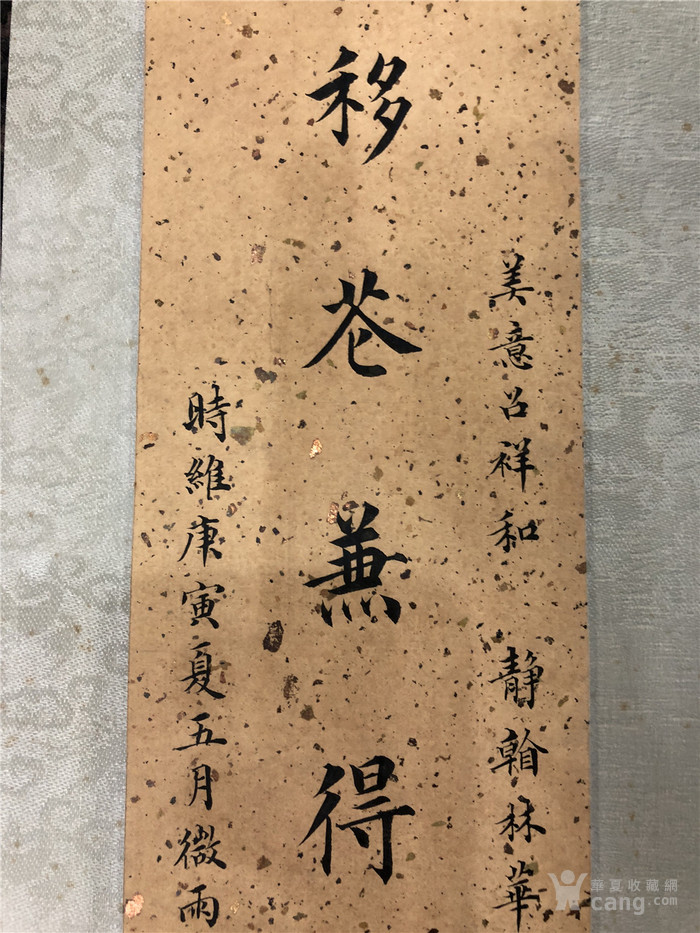 美意召祥和 静翰林華
移花兼得
時維庚寅夏五月微雨
華夏收藏網
cang.com